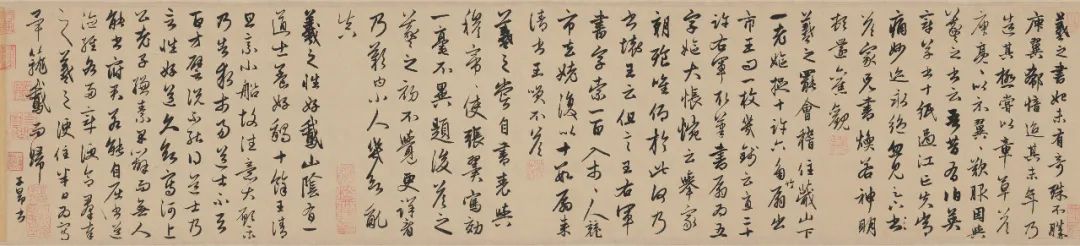 羲之書初未有奇殊不勝
庾翼郗愔迨其末年乃
造其極嘗以章草答
庾亮亮以示翼翼歎服因與
羲之書云吾昔有伯英
章草書十紙過江亡失常
痛妙迹永絕忽見足下
答家兄書煥若神明
頓還舊觀
羲之罷會稽住蕺山下
一老嫗捉十許六角竹扇出
市王問一枚幾錢云直二十
許右軍取筆書扇扇為五
字嫗大悵惋云舉家
朝飧唯仰於此何乃
書壞王云但言王右軍
書字索一百入市市人競
市去姥復以十數扇來
請書王笑不答
羲之嘗自書表與
穆帝帝使張翼寫效
一毫不異題後答之
羲之初不覺更詳看
乃歎曰小人幾欲亂
真
羲之性好鵝山陰有一
道士養好鵝十餘王清
旦乘小船故往意大願樂
乃告求市易道士不與
百方譬說不能得之道士乃
言性好道久欲寫河上
公老子縑素早辦而無人
能書府君若能自屈書道
德經各兩章便合群奉
之羲之便住半日為寫
畢籠鵝而歸
子昂書